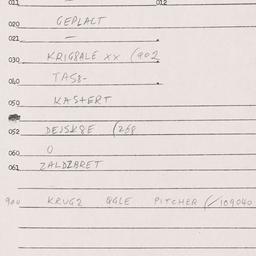 011 — 012
020 GEPLALT
021 —
030 KRIGPALE XX (902
040 TASB-
050 KASTERT
052 DEJSKØE (268
060 0
061 ZALDZBRET
900 KRUG2 QGLE PITCHER (/109040